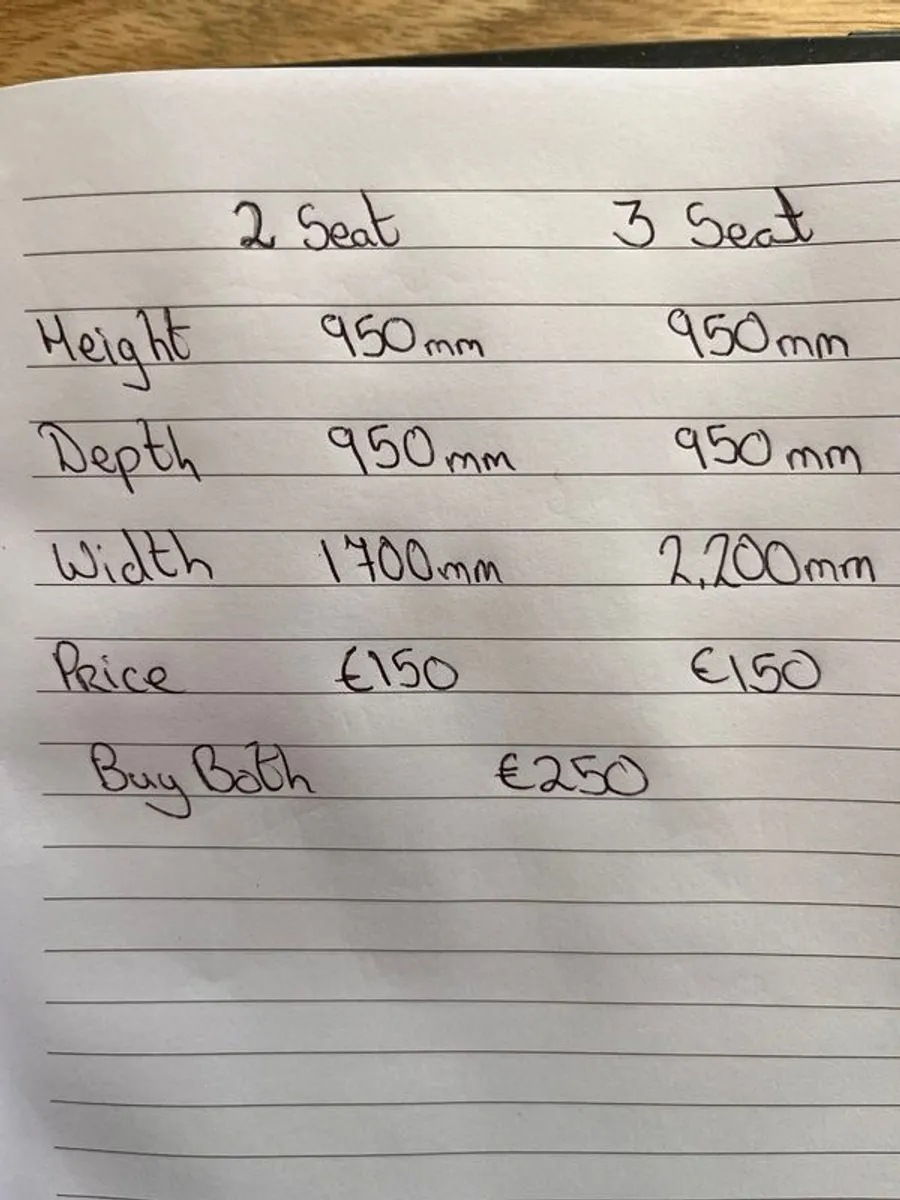 2 Seat 3 Seat
Height 950mm 950mm
Depth 950mm 950mm
Width 1700mm 2,200mm
Price €150 €150
Buy Both €250